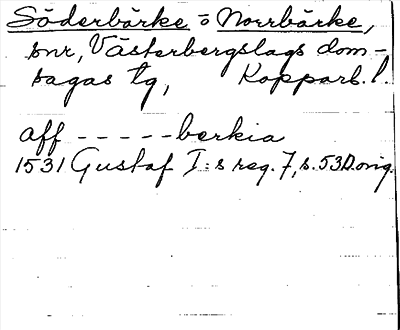 Söderbärke o Norrbärke,
snr, Västerbergslags dom-
sagas tg, Kopparb. l.
aff - - - - - berkia
1531 Gustaf I:s reg. 7, s. 53 D. orig.